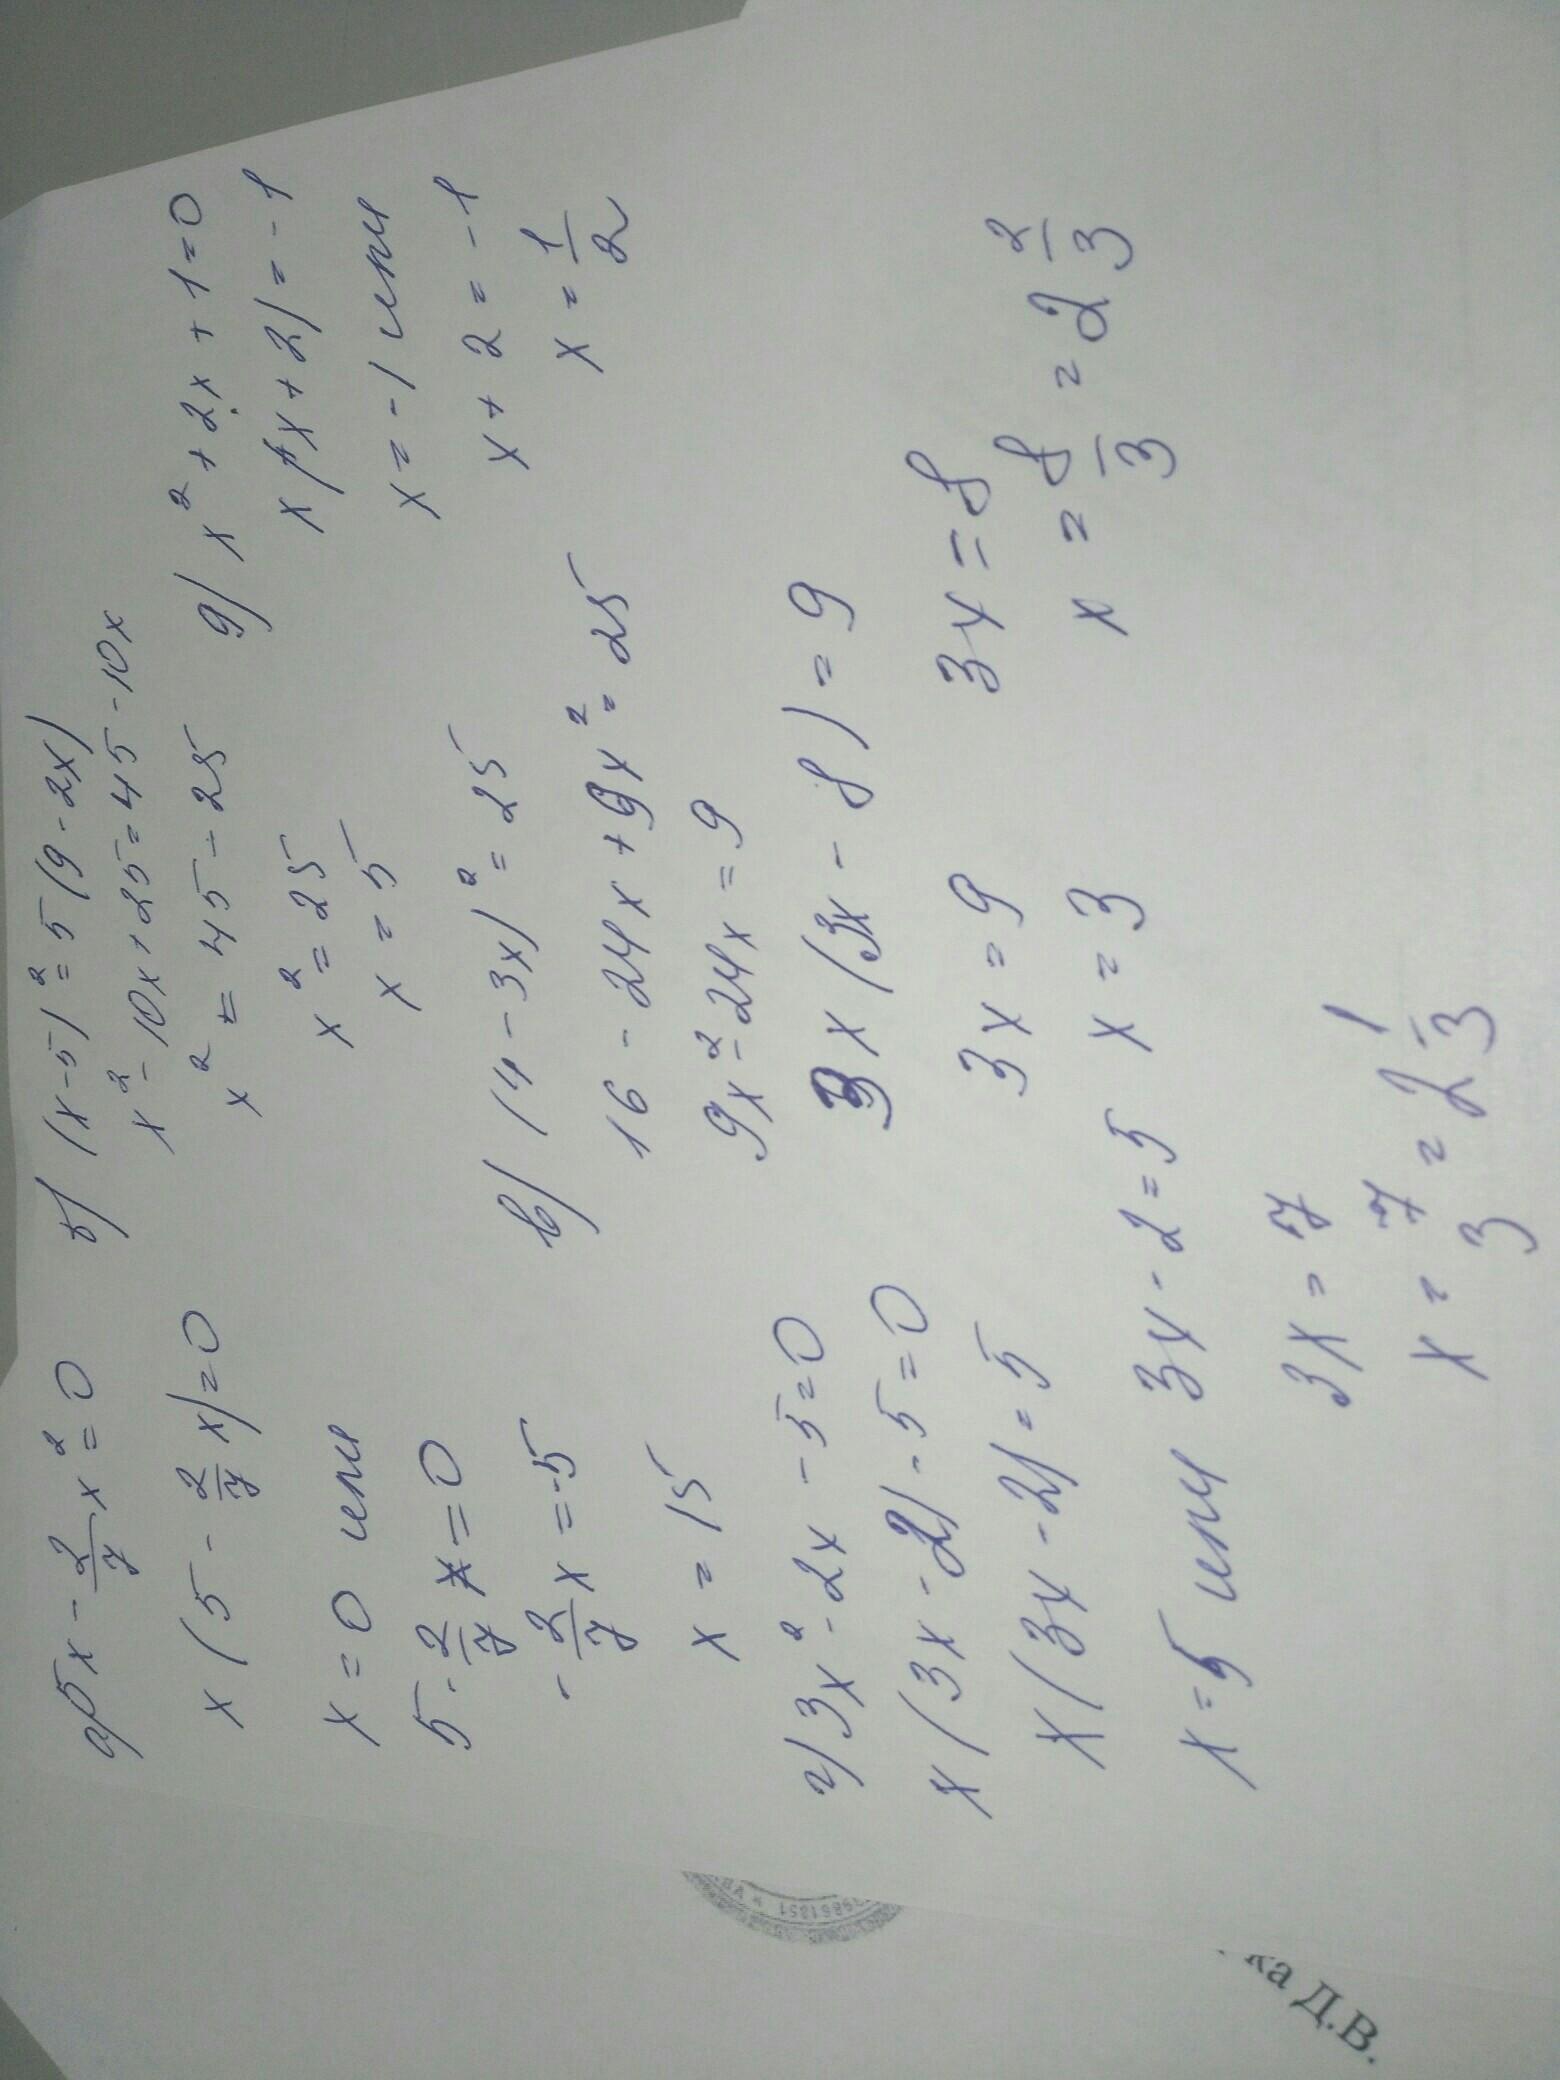 а) 5x - 2/7 x² = 0
x (5 - 2/7 x) = 0
x = 0 или
5 - 2/7 x = 0
- 2/7 x = -5
x = 15
б) (x-5)² = 5 (9 - 2x)
x² - 10x + 25 = 45 - 10x
x² = 45 - 25
x² = 25
x = 5
в) (4 - 3x)² = 25
16 - 24x + 9x² = 25
9x² - 24x = 9
3x (3x - 8) = 9
3x = 9
x = 3
3x = 8
x = 8/3 = 2 2/3
г) 3x² - 2x - 5 = 0
x (3x - 2) - 5 = 0
x (3x - 2) = 5
x = 5 или 3x - 2 = 5
3x = 7
x = 7/3 = 2 1/3
д) x² + 2x + 1 = 0
x (x + 2) = -1
x = -1 или
x + 2 = -1
x = 1/2
ка Д.В.